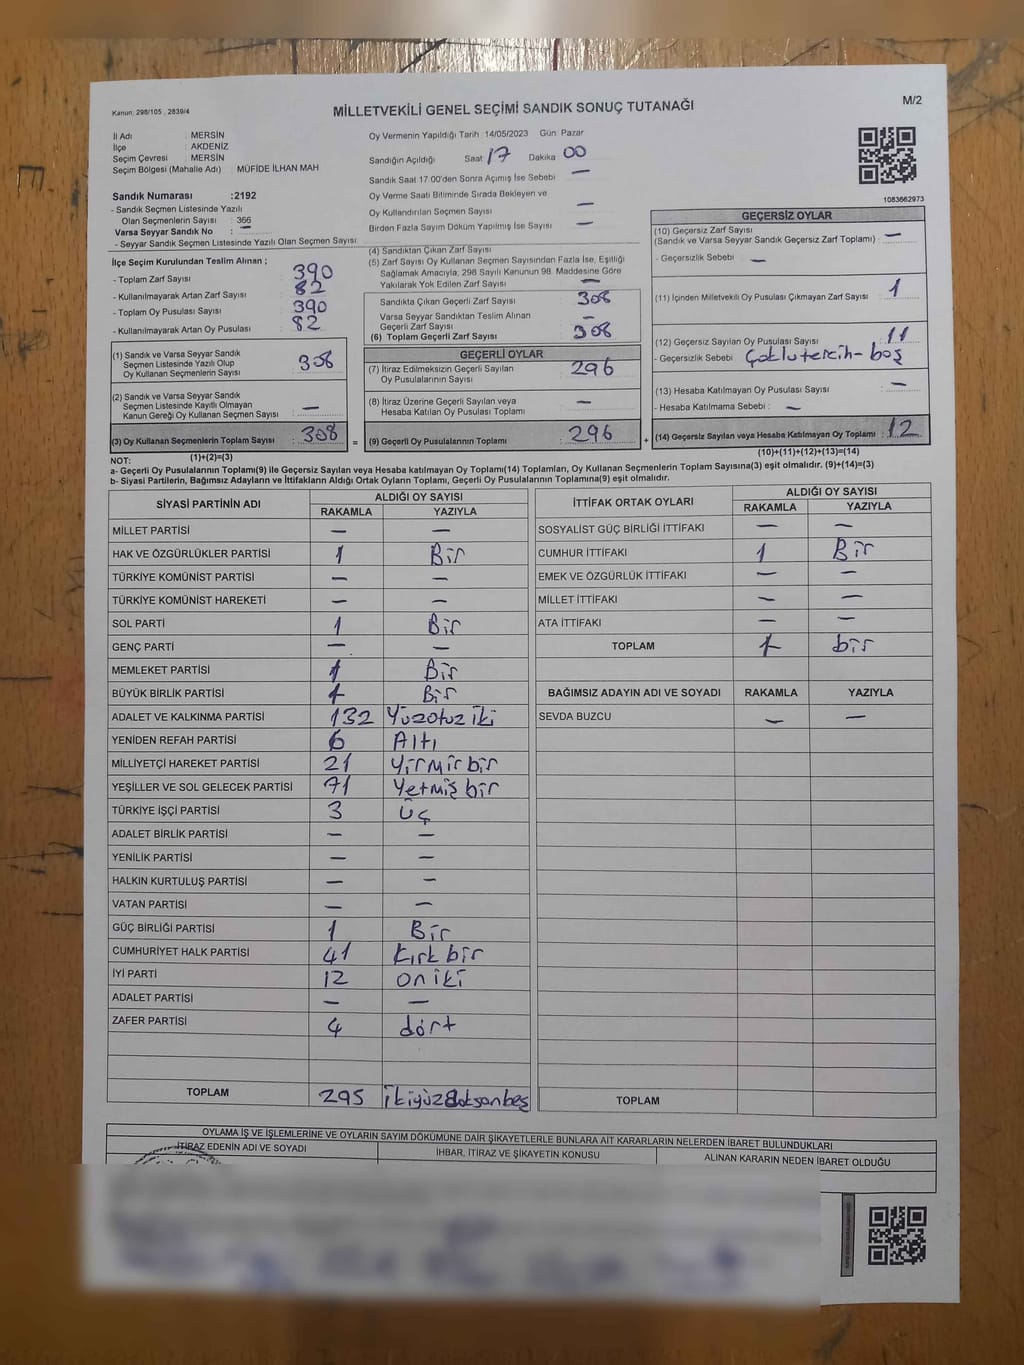 Kanun: 298/105 , 2839/4
MİLLETVEKİLİ GENEL SEÇİMİ SANDIK SONUÇ TUTANAĞI
M/2
İl Adı : MERSİN
İlçe : AKDENİZ
Seçim Çevresi : MERSİN
Seçim Bölgesi (Mahalle Adı) : MÜFİDE İLHAN MAH
Sandık Numarası :2192
- Sandık Seçmen Listesinde Yazılı
Olan Seçmenlerin Sayısı : 366
Varsa Seyyar Sandık No : —
- Seyyar Sandık Seçmen Listesinde Yazılı Olan Seçmen Sayısı:
Oy Vermenin Yapıldığı Tarih 14/05/2023 Gün Pazar
Sandığın Açıldığı Saat 17 Dakika 00
Sandık Saat 17:00'den Sonra Açılmış İse Sebebi —
Oy Verme Saati Bitiminde Sırada Bekleyen ve
Oy Kullandırılan Seçmen Sayısı —
Birden Fazla Sayım Döküm Yapılmış İse Sayısı —
1083662973
İlçe Seçim Kurulundan Teslim Alınan ;
- Toplam Zarf Sayısı : 390
- Kullanılmayarak Artan Zarf Sayısı : 82
- Toplam Oy Pusulası Sayısı : 390
- Kullanılmayarak Artan Oy Pusulası : 82
(1) Sandık ve Varsa Seyyar Sandık
Seçmen Listesinde Yazılı Olup
Oy Kullanan Seçmenlerin Sayısı : 308
(2) Sandık ve Varsa Seyyar Sandık
Seçmen Listesinde Kayıtlı Olmayan
Kanun Gereği Oy Kullanan Seçmen Sayısı : —
(3) Oy Kullanan Seçmenlerin Toplam Sayısı : 308
(1)+(2)=(3)
(4) Sandıktan Çıkan Zarf Sayısı
(5) Zarf Sayısı Oy Kullanan Seçmen Sayısından Fazla İse, Eşitliği
Sağlamak Amacıyla, 298 Sayılı Kanunun 98. Maddesine Göre
Yakılarak Yok Edilen Zarf Sayısı —
Sandıkta Çıkan Geçerli Zarf Sayısı 308
Varsa Seyyar Sandıktan Teslim Alınan
Geçerli Zarf Sayısı —
(6) Toplam Geçerli Zarf Sayısı 308
GEÇERLİ OYLAR
(7) İtiraz Edilmeksizin Geçerli Sayılan
Oy Pusulalarının Sayısı 296
(8) İtiraz Üzerine Geçerli Sayılan veya
Hesaba Katılan Oy Pusulası Toplamı —
= (9) Geçerli Oy Pusulalarının Toplamı 296
GEÇERSİZ OYLAR
(10) Geçersiz Zarf Sayısı
(Sandık ve Varsa Seyyar Sandık Geçersiz Zarf Toplamı) : —
- Geçersizlik Sebebi —
(11) İçinden Milletvekili Oy Pusulası Çıkmayan Zarf Sayısı : 1
(12) Geçersiz Sayılan Oy Pusulası Sayısı : 11
- Geçersizlik Sebebi Çoklu tercih- boş
(13) Hesaba Katılmayan Oy Pusulası Sayısı : —
- Hesaba Katılmama Sebebi : —
+ (14) Geçersiz Sayılan veya Hesaba Katılmayan Oy Toplamı : 12
(10)+(11)+(12)+(13)=(14)
NOT:
a- Geçerli Oy Pusulalarının Toplamı(9) ile Geçersiz Sayılan veya Hesaba katılmayan Oy Toplamı(14) Toplamları, Oy Kullanan Seçmenlerin Toplam Sayısına(3) eşit olmalıdır. (9)+(14)=(3)
b- Siyasi Partilerin, Bağımsız Adayların ve İttifakların Aldığı Oyların Toplamı, Geçerli Oy Pusulalarının Toplamına(9) eşit olmalıdır.
SİYASİ PARTİNİN ADI ALDIĞI OY SAYISI
RAKAMLA YAZIYLA
MİLLET PARTİSİ — —
HAK VE ÖZGÜRLÜKLER PARTİSİ 1 Bir
TÜRKİYE KOMÜNİST PARTİSİ — —
TÜRKİYE KOMÜNİST HAREKETİ — —
SOL PARTİ 1 Bir
GENÇ PARTİ — —
MEMLEKET PARTİSİ 1 Bir
BÜYÜK BİRLİK PARTİSİ 1 Bir
ADALET VE KALKINMA PARTİSİ 132 Yüzotuz iki
YENİDEN REFAH PARTİSİ 6 Altı
MİLLİYETÇİ HAREKET PARTİSİ 21 Yirmir bir
YEŞİLLER VE SOL GELECEK PARTİSİ 71 Yetmiş bir
TÜRKİYE İŞÇİ PARTİSİ 3 Üç
ADALET BİRLİK PARTİSİ — —
YENİLİK PARTİSİ — —
HALKIN KURTULUŞ PARTİSİ — —
VATAN PARTİSİ — —
GÜÇ BİRLİĞİ PARTİSİ 1 Bir
CUMHURİYET HALK PARTİSİ 41 Kırk bir
İYİ PARTİ 12 on iki
ADALET PARTİSİ — —
ZAFER PARTİSİ 4 dört
TOPLAM 295
İTTİFAK ORTAK OYLARI ALDIĞI OY SAYISI
RAKAMLA YAZIYLA
SOSYALİST GÜÇ BİRLİĞİ İTTİFAKI — —
CUMHUR İTTİFAKI 1 Bir
EMEK VE ÖZGÜRLÜK İTTİFAKI — —
MİLLET İTTİFAKI — —
ATA İTTİFAKI — —
TOPLAM 1 bir
BAĞIMSIZ ADAYIN ADI VE SOYADI RAKAMLA YAZIYLA
SEVDA BUZCU — —
TOPLAM
OYLAMA İŞ VE İŞLEMLERİNE VE OYLARIN SAYIM DÖKÜMÜNE DAİR ŞİKAYETLERLE BUNLARA AİT KARARLARIN NELERDEN İBARET BULUNDUKLARI
İTİRAZ EDENİN ADI VE SOYADI İHBAR, İTİRAZ VE ŞİKAYETİN KONUSU ALINAN KARARIN NEDEN İBARET OLDUĞU